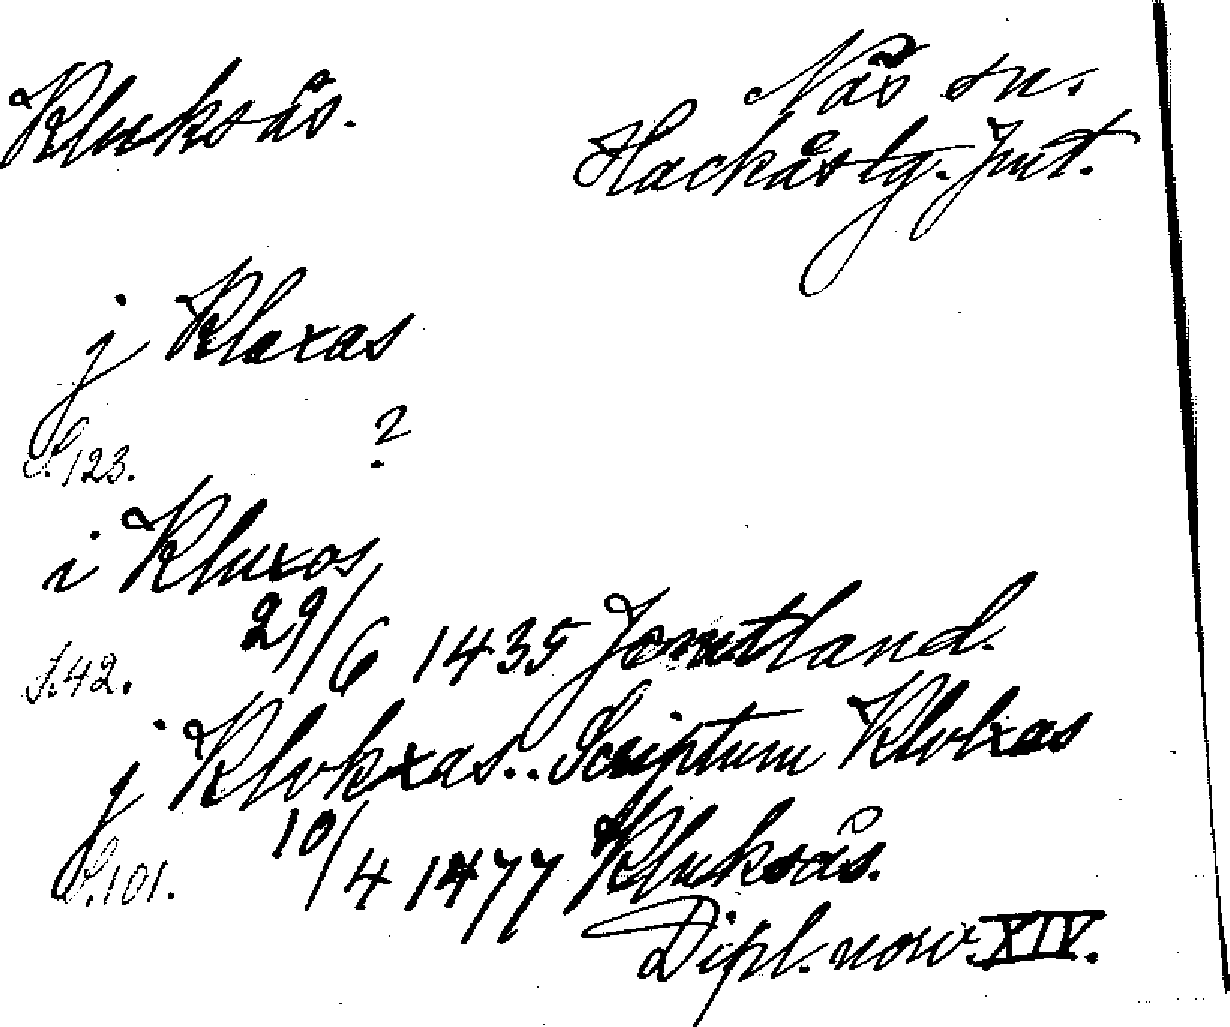 Kluksås.
Näs sn.
Hackås tg. Jmt.
j Klaxas
S. 123. ?
i Kluxos
29/6 1435 Jemtland.
S. 42.
j Klokxas.. Scriptum Klokxas
10/4 1477 Kluksås.
S. 101.
Dipl. norv. XIV.